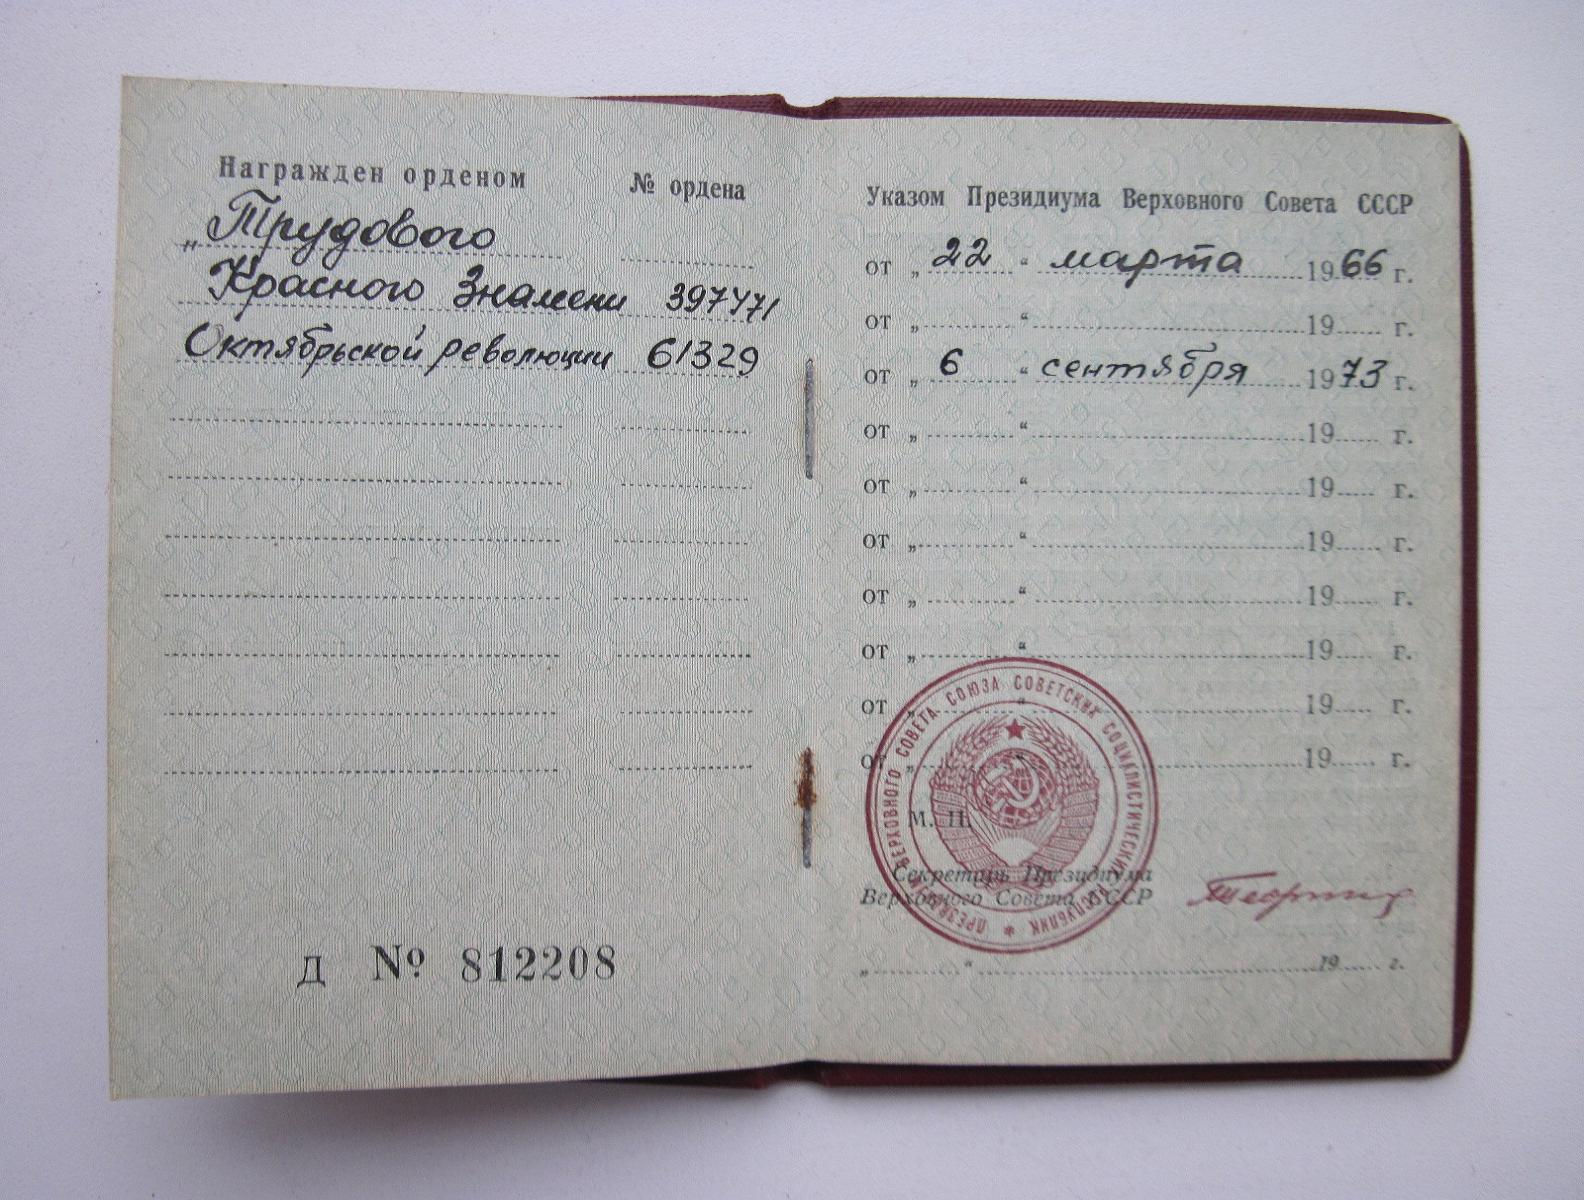 Награжден орденом № ордена
„Трудового
Красного Знамени 397471
Октябрьской революции 61329
Д № 812208
Указом Президиума Верховного Совета СССР
от „ 22 “ марта 1966 г.
от „ “ 19 г.
от „ 6 “ сентября 1973 г.
от „ “ 19 г.
от „ “ 19 г.
от „ “ 19 г.
от „ “ 19 г.
от „ “ 19 г.
от „ “ 19 г.
от „ “ 19 г.
М. П.
ПРЕЗИДИУМ ВЕРХОВНОГО СОВЕТА СОЮЗА СОВЕТСКИХ СОЦИАЛИСТИЧЕСКИХ РЕСПУБЛИК
Секретарь Президиума
Верховного Совета СССР
„ “ 19 г.